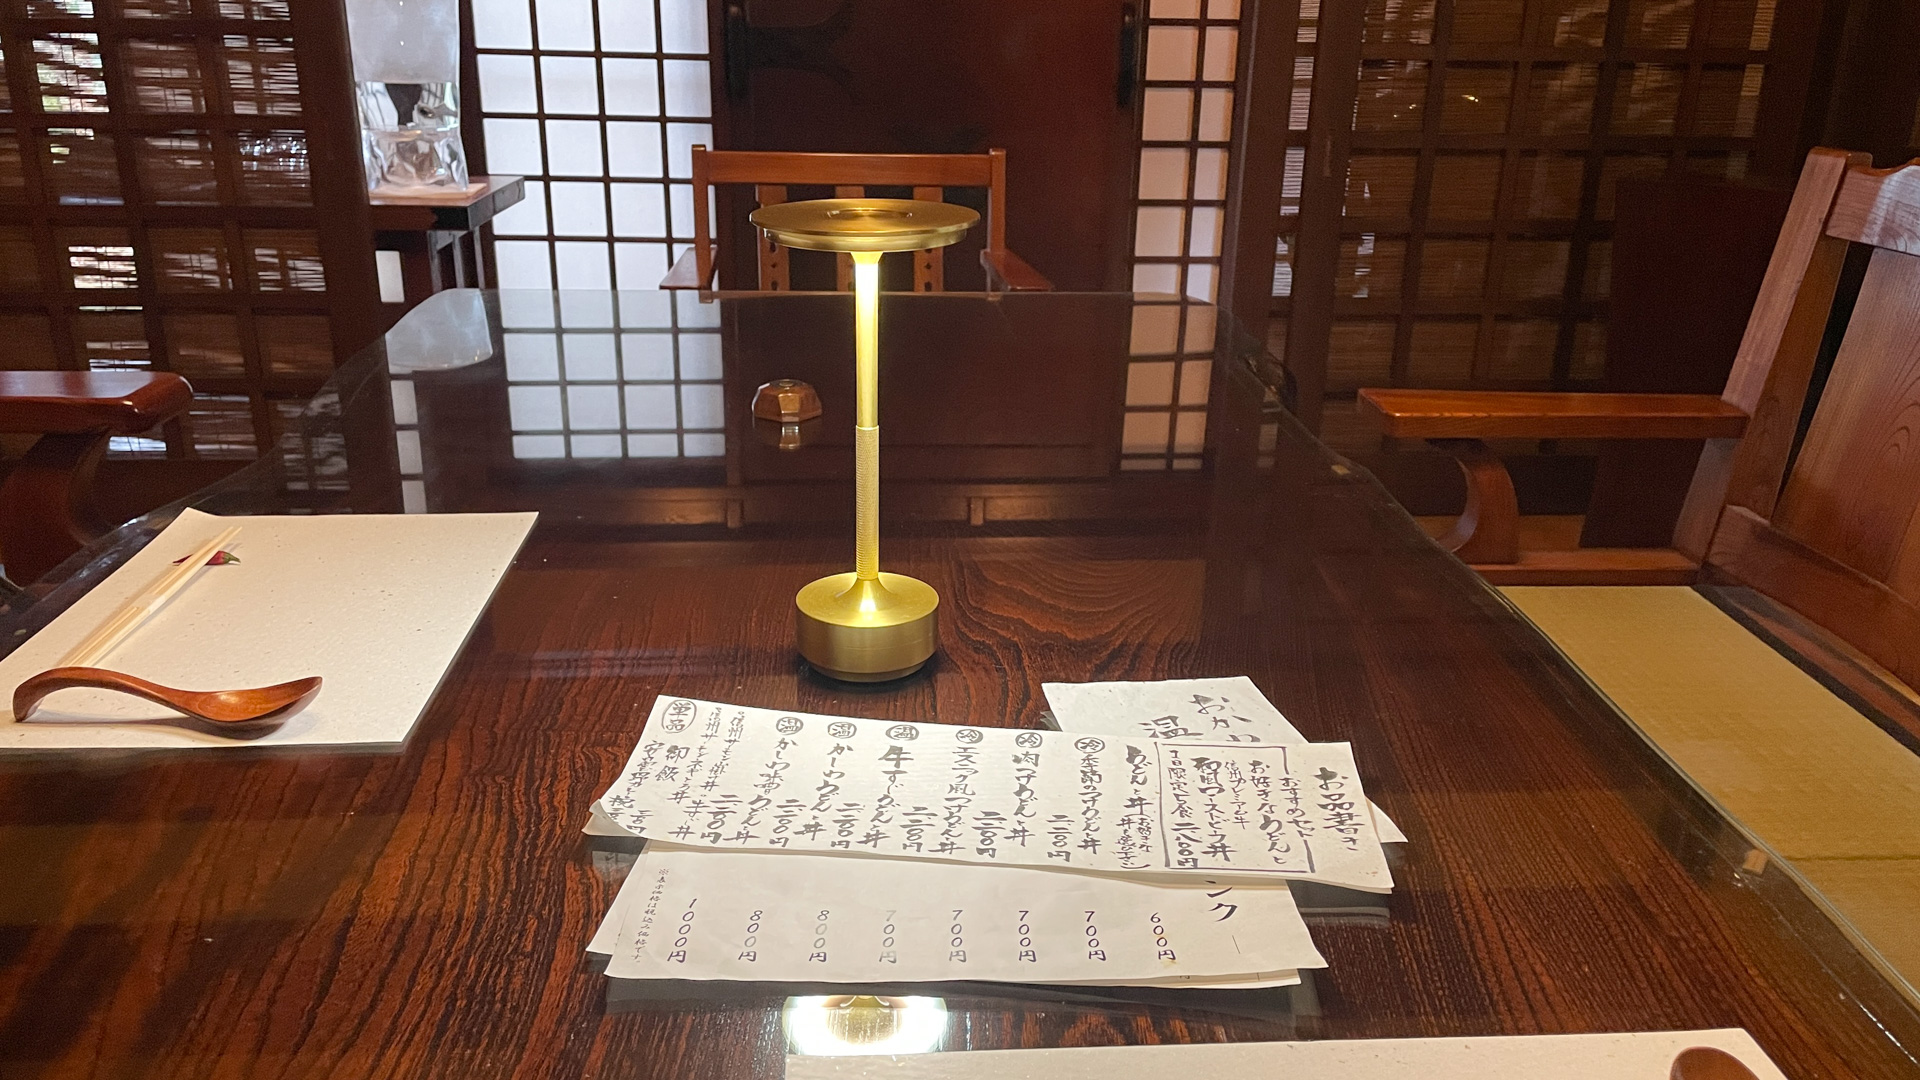 お品書き
おすすめセット
お好きなうどんと
信州プレミアム牛
和風ローストビーフ丼
1日限定七食 二八〇〇円
うどんと丼
季節のつけうどんと丼
二二〇〇円
冷
肉つけうどんと丼
二二〇〇円
冷
エスニック風つけうどんと丼
二二〇〇円
温
牛すじうどんと丼
二二〇〇円
温
かしわうどんと丼
二二〇〇円
温
かしわ味噌うどんと丼
二二〇〇円
信州サーモン丼
信州サーモンネギとろ丼
牛すじ丼
単品
御飯
おか
温
ンク
600円
700円
700円
700円
700円
800円
800円
1000円
※表示価格は税込み価格です。